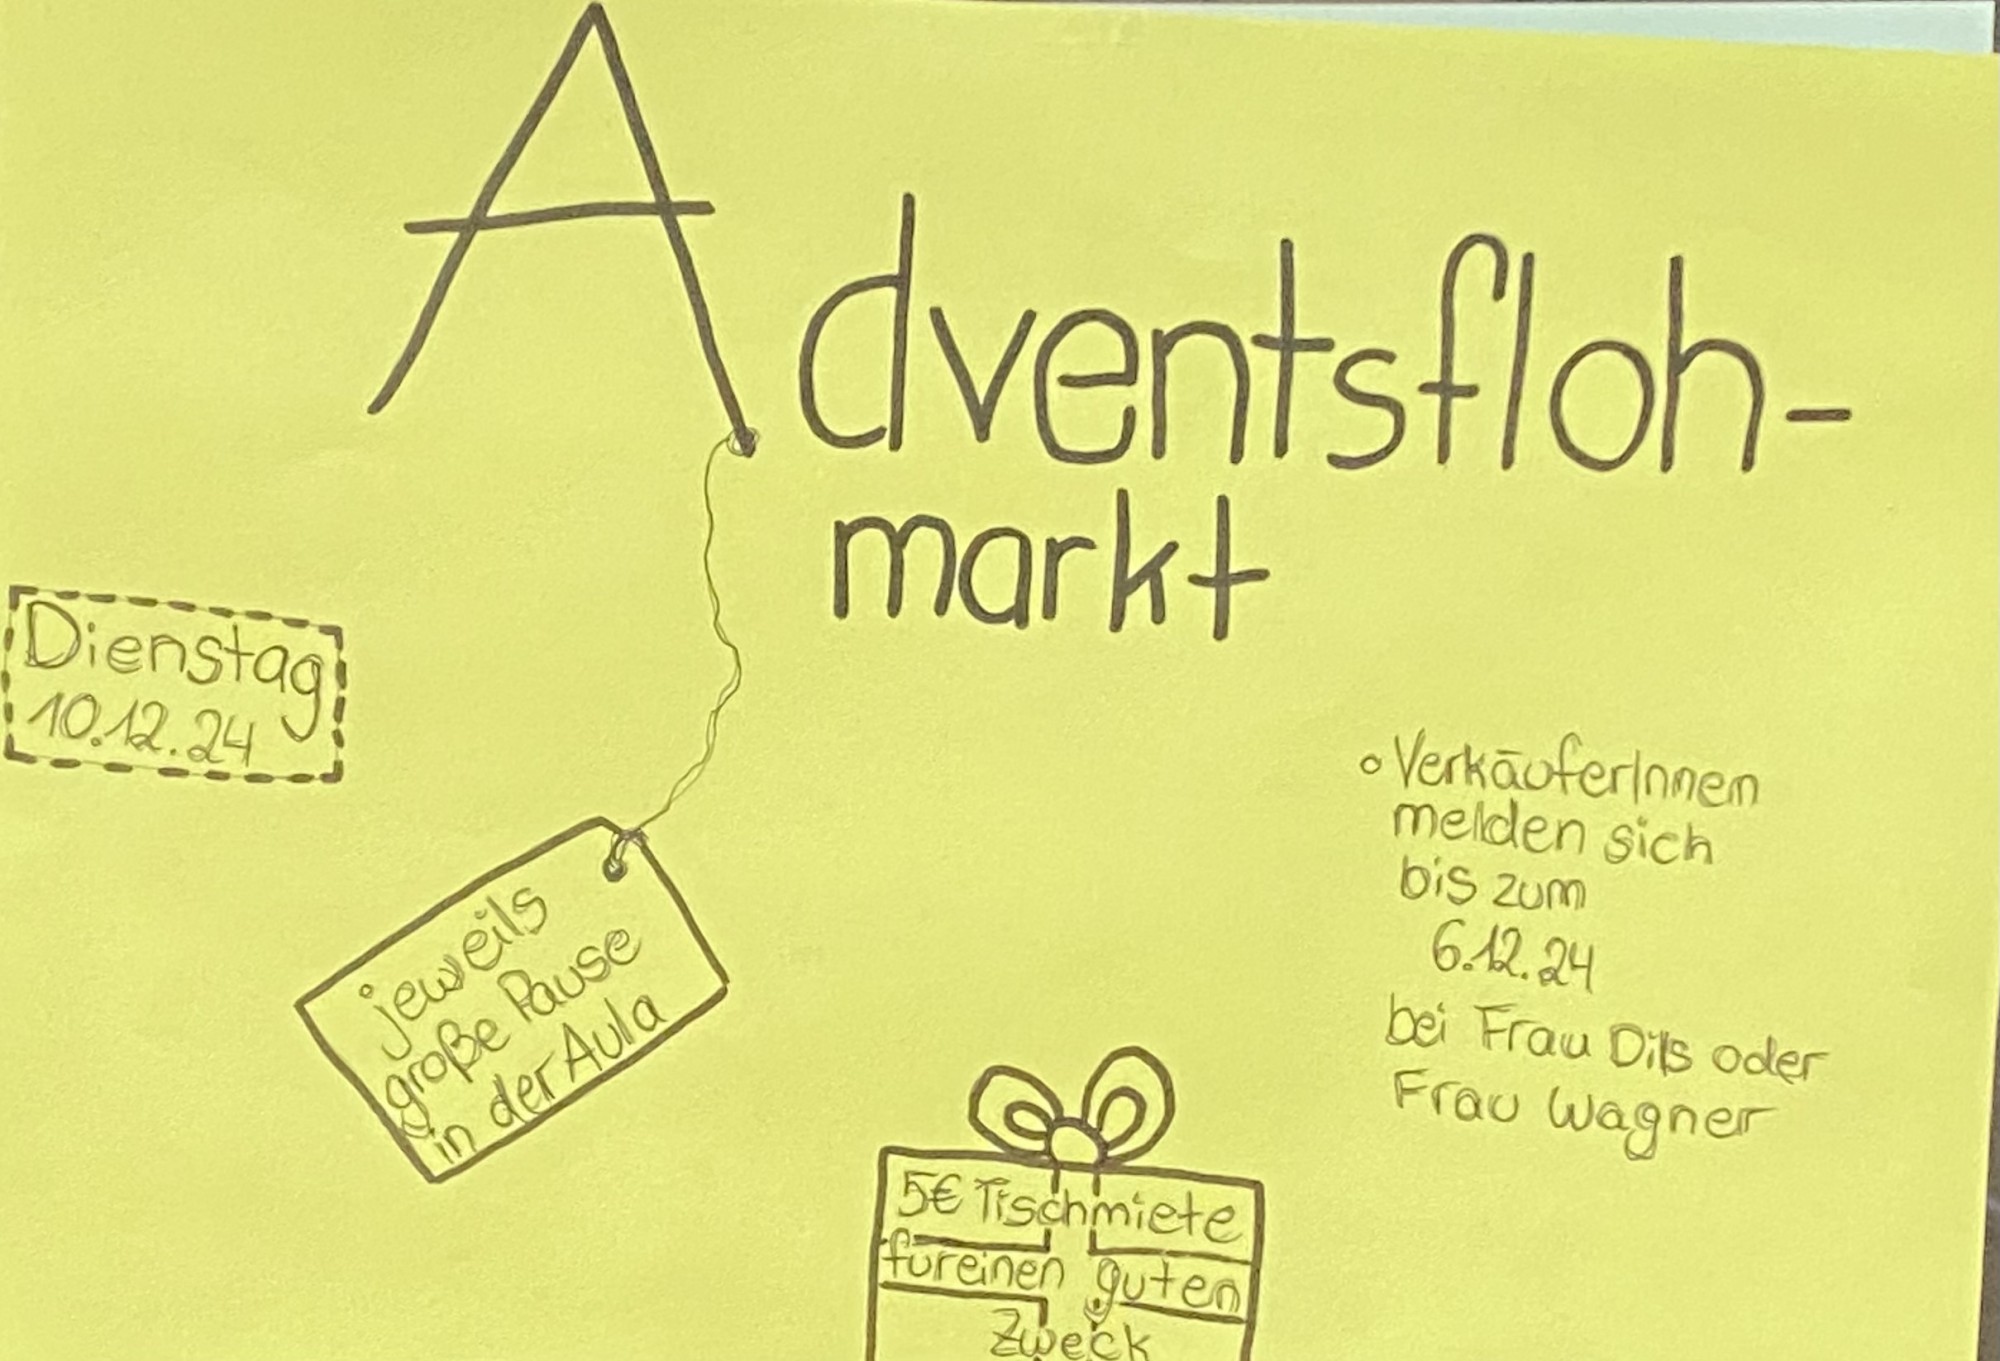 Adventsfloh-
markt
Dienstag
10.12.24
jeweils
große Pause
in der Aula
• VerkäuferInnen
melden sich
bis zum
6.12.24
bei Frau Dils oder
Frau Wagner
5€ Tischmiete
für einen guten
Zweck